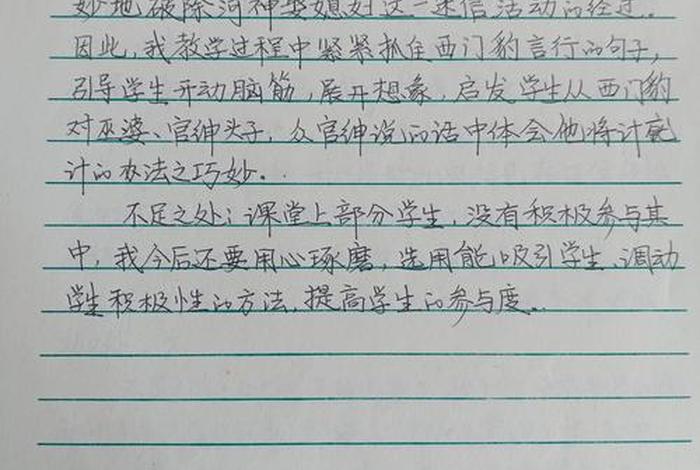 妙地破除河神娶媳妇这一迷信活动的经过。
因此,我教学过程中紧紧抓住西门豹言行的句子,
引导学生开动脑筋,展开想象,启发学生从西门豹
对巫婆、官绅头子,众官绅说的话中体会他将计就
计的办法之巧妙。
不足之处:课堂上部分学生,没有积极参与其
中,我今后还要用心琢磨,选用能吸引学生、调动
学生积极性的方法,提高学生的参与度。